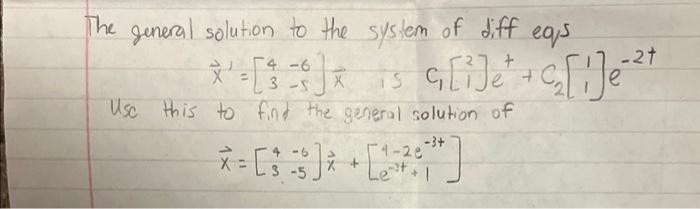 The general solution to the system of diff eqs
x⃗' = [4 -6; 3 -5] x⃗ is C₁[2; 1]e^t + C₂[1; 1]e^-2t
Use this to find the general solution of
x⃗ = [4 -6; 3 -5] x⃗ + [4-2e^-3t; e^-3t + 1]